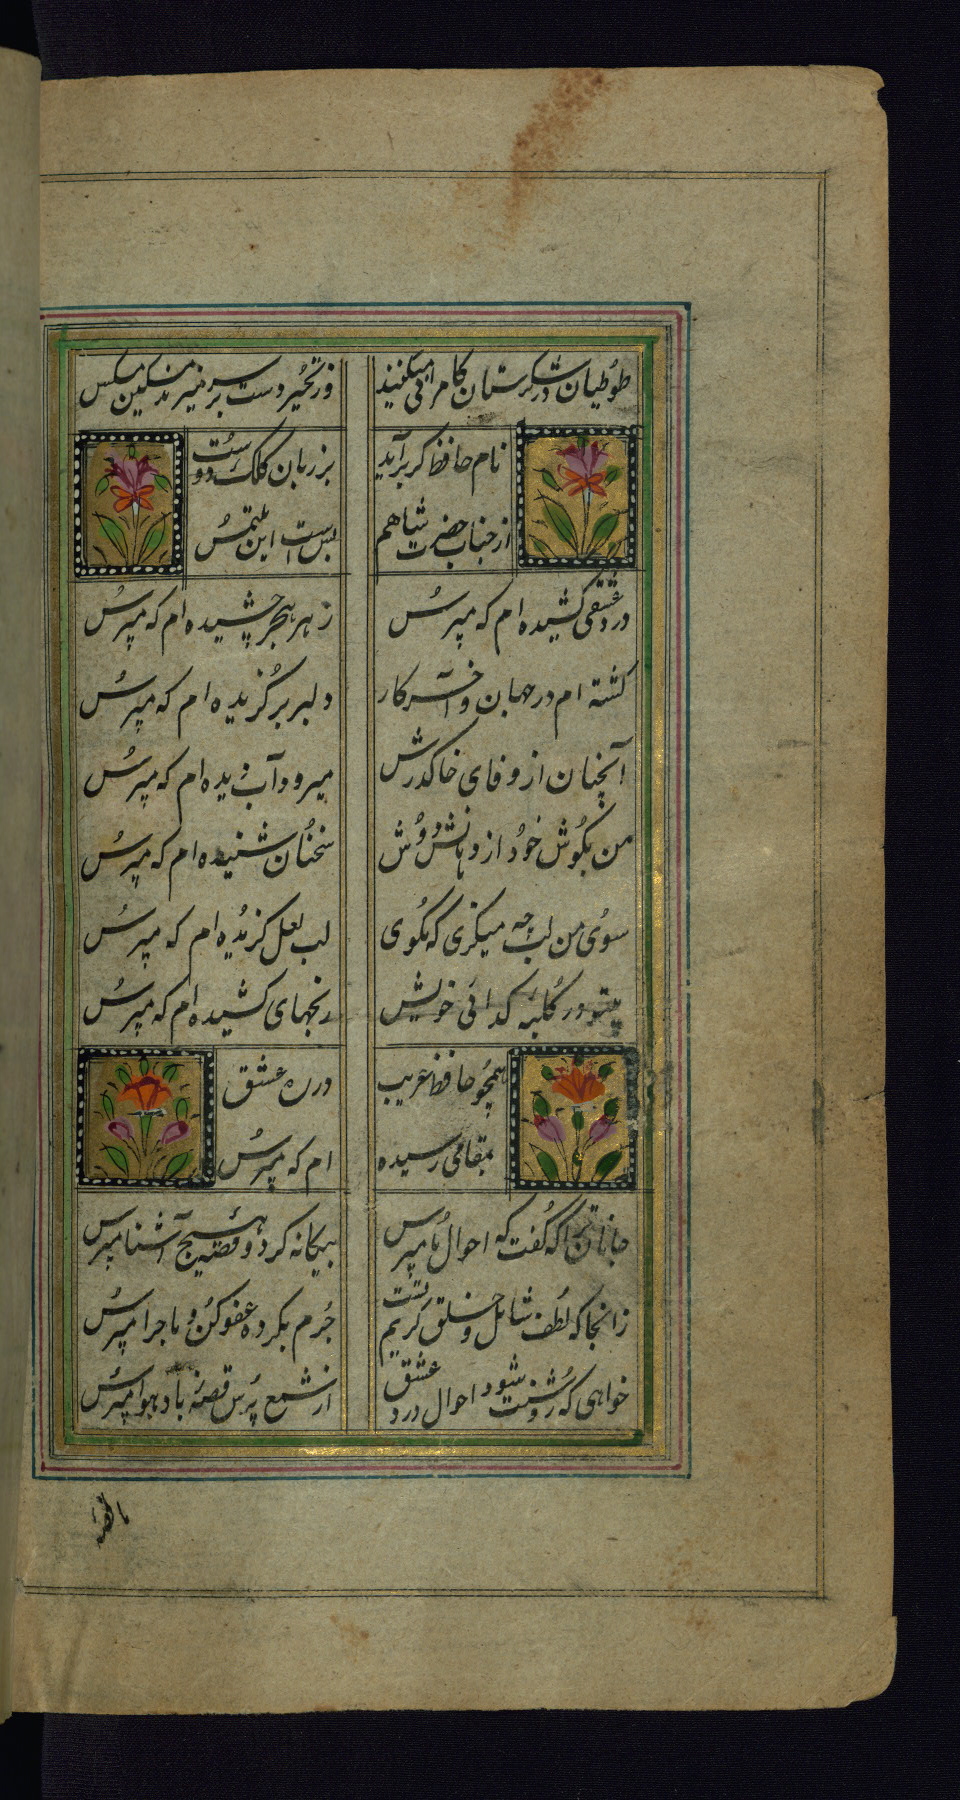 طوطیان در شکرستان کامرانی میکنند وز تحیر دست بر سر میزند مسکین مگس
نام حافظ گر برآید بر زبان کلک دوست
از جناب حضرت شاهم بس است این ملتمس
درد عشقی کشیده ام که مپرس زهر هجر چشیده ام که مپرس
گشته ام در جهان و آخر کار دلبر برگزیده ام که مپرس
آنچنان از وفای خاک درش میرود آب دیده ام که مپرس
من بگوش خود از دهانش دوش سخنان شنیده ام که مپرس
سوی من لب چه میگزی که مگوی لب لعل گزیده ام که مپرس
بیتو در کلبه گدائی خویش رنجهای کشیده ام که مپرس
همچو حافظ غریب در ره عشق
بمقامی رسیده ام که مپرس
جانا ترا که گفت که احوال ما مپرس بیگانه گرد و قصه هیچ آشنا مپرس
زانجا که لطف شامل و خلق کریم تست جرم بکرده عفو کن و ماجرا مپرس
خواهی که روشنت شود احوال درد عشق از شمع پرس قصه ز باد هوا مپرس
ما قصه